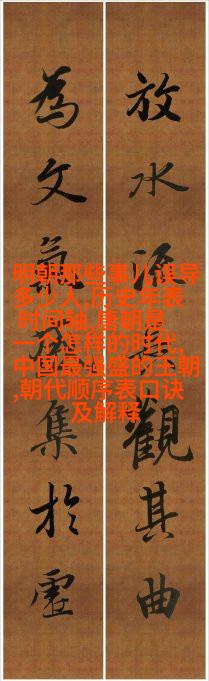 放水觀其曲
為文氣集於虛
明朝那些事儿误导
多少人,历史年表
时间轴,唐朝是
一个怎样的时代,
中国最强盛的王朝
,朝代顺序表口诀
及解释